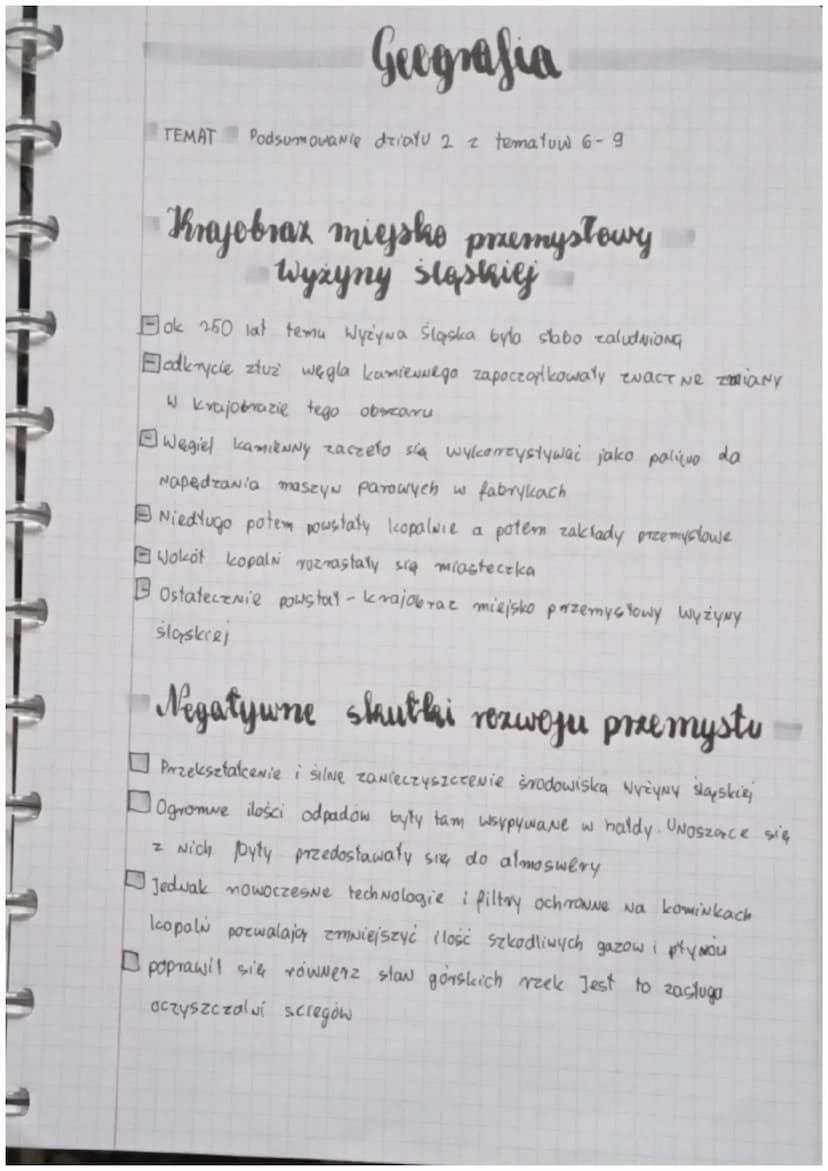 Geografia
TEMAT Podsumowanie działu 2 z tematuw 6-9
Krajobraz miejsko przemysłowy
Wyżyny śląskiej
ok 250 lat temu Wyżyna Śląska była słabo zaludniona
odkrycie złuż węgla kamiennego zapoczątkowały znaczne zmiany
w krajobrazie tego obszaru
Węgiel kamienny zaczeto się wykorzystywać jako paliwo da
napędzania maszyn parowych w fabrykach
Niedługo potem powstały kopalnie a potem zakłady przemysłowe
Wokół kopalni rozrastały się miasteczka
Ostatecznie powstał - krajobraz miejsko przemysłowy wyżyny
śląskiej
Negatywne skutki rozwoju przemysłu
Przekształcenie i silne zanieczyszczenie środowiska Wyżyny śląskiej
Ogromne ilości odpadów były tam wsypywane w hałdy. Unoszące się
z nich pyły przedostawały się do atmoswery
Jednak nowoczesne technologie i filtry ochronne na kominkach
kopalń pozwalają zmniejszyć ilość szkodliwych gazów i płynów
poprawił się równierz stan górskich rzek Jest to zasługa
oczyszczalni ścregów